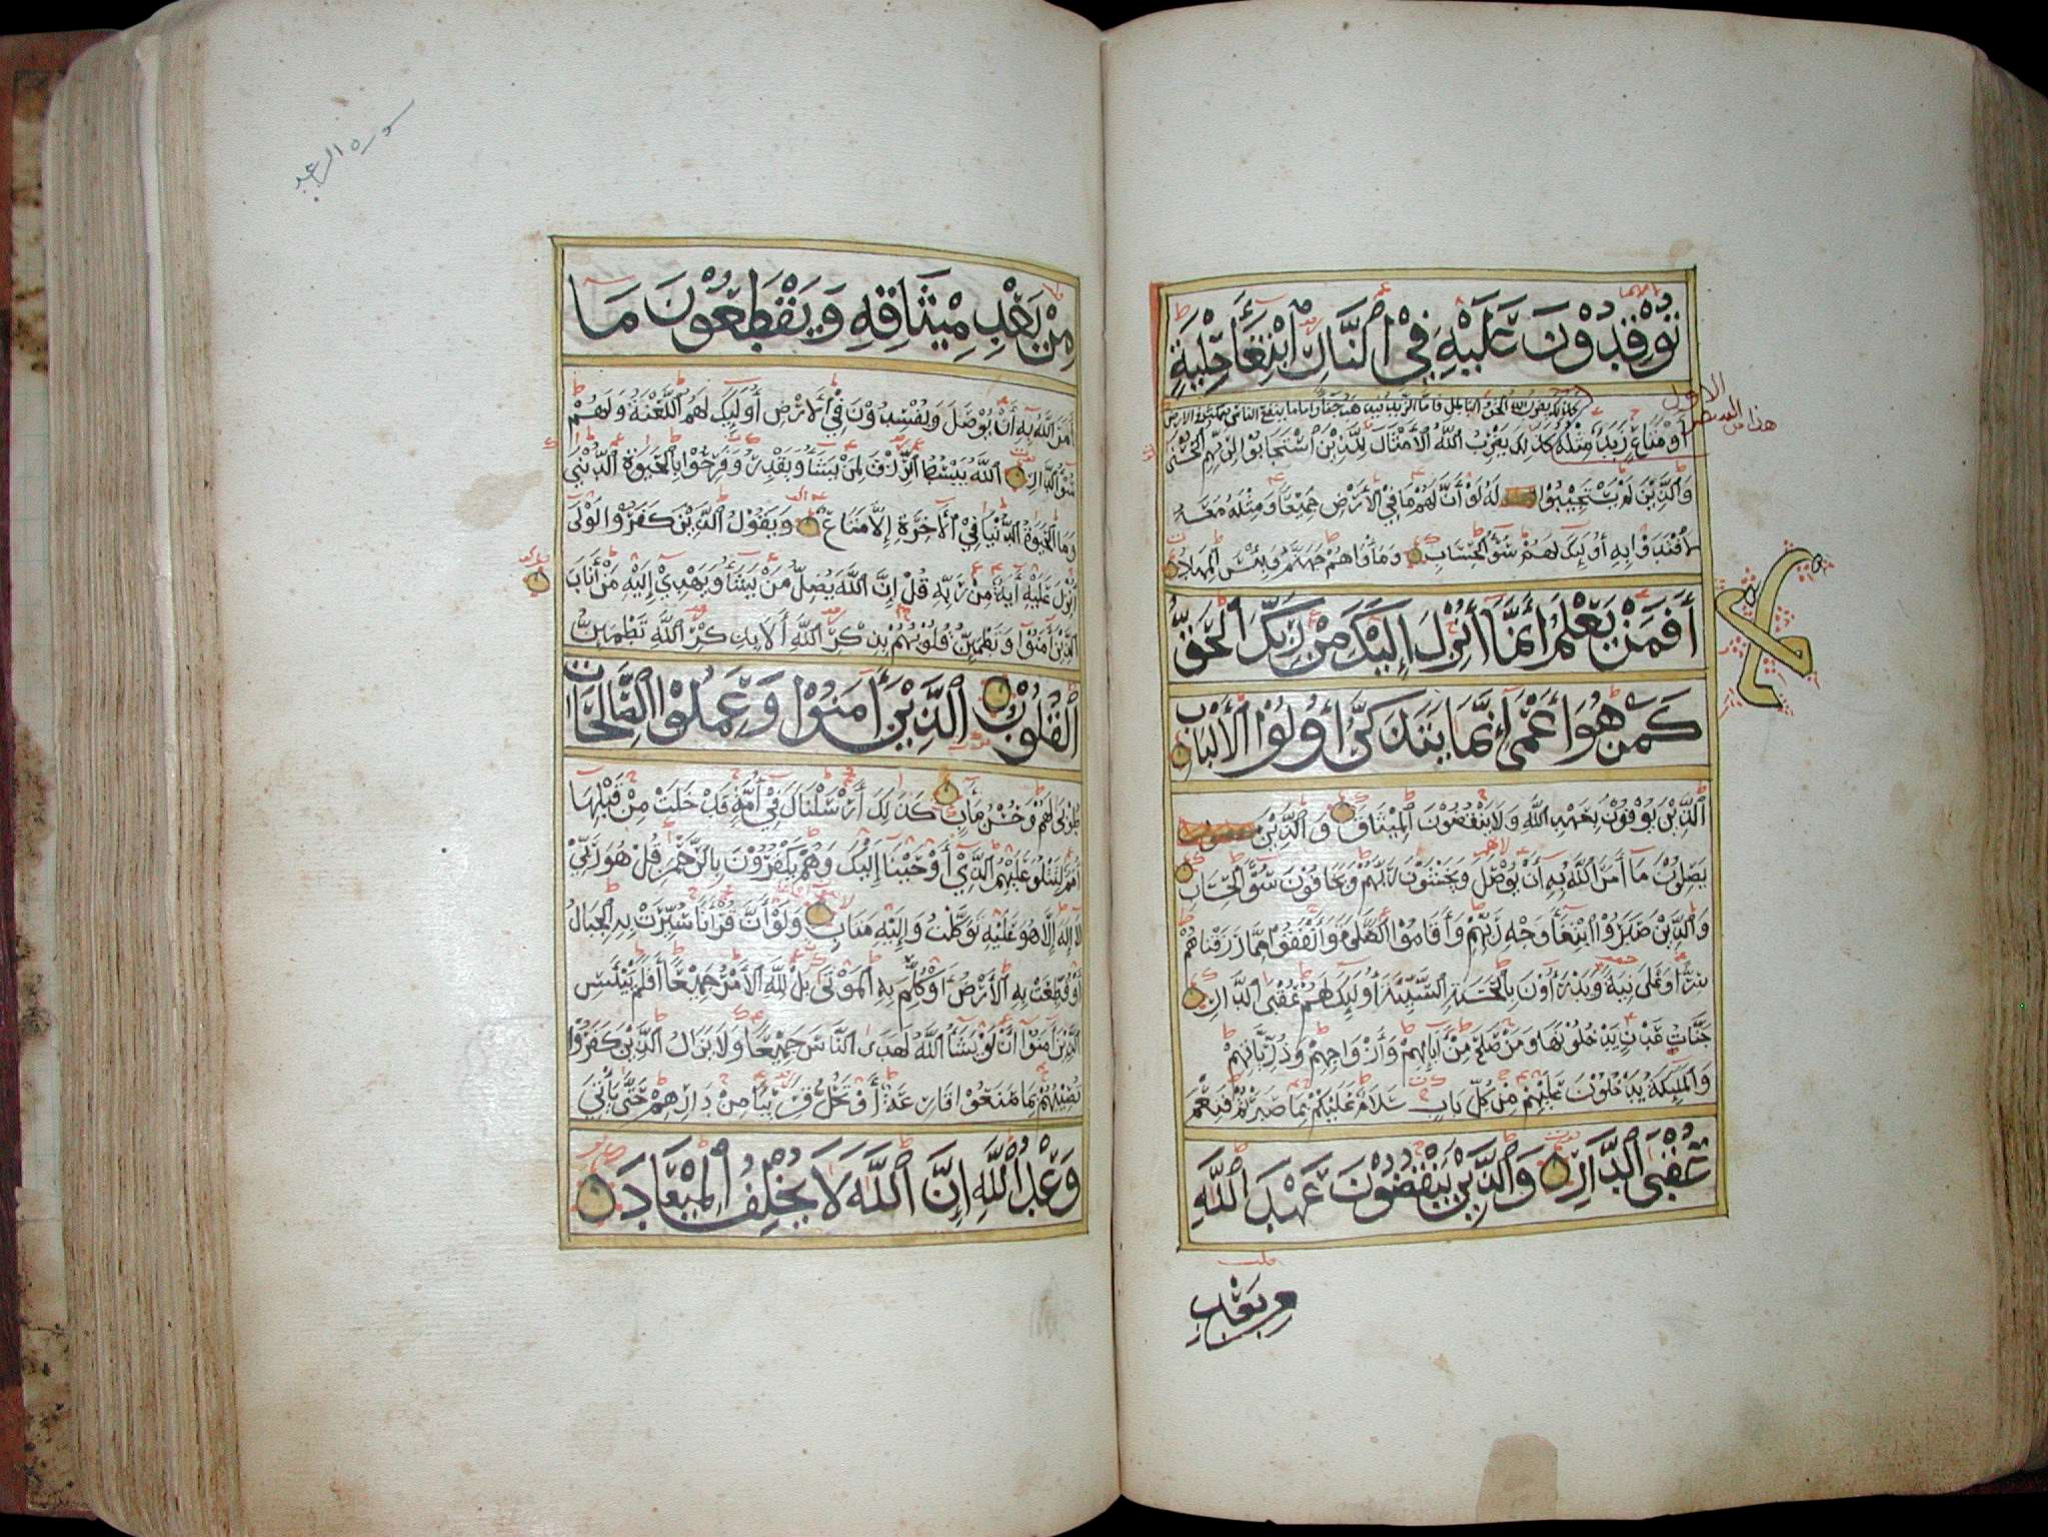 توقدون عليه في النار ابتغا حلية
كذلك يضرب الله الحق والباطل فاما الزبد فيذهب جفا واما ما ينفع الناس فيمكث في الارض
أو متاع زبد مثله كذلك يضرب الله الأمثال للذين استجابوا لربهم الحسنى
والذين لم يستجيبوا له لو أن لهم ما في الأرض جميعا ومثله معه
لافتدوا به أوليك لهم سو الحساب ومأواهم جهنم وبئس المهاد
أفمن يعلم أنما أنزل إليك من ربك الحق
كمن هو أعمى إنما يتذكر أولوا الألباب
الذين يوفون بعهد الله ولا ينقضون الميثاق والذين
يصلون ما أمر الله به أن يوصل ويخشون ربهم ويخافون سو الحساب
والذين صبروا ابتغا وجه ربهم وأقاموا الصلوة وأنفقوا مما رزقناهم
سرا وعلانية ويدرأون بالحسنة السيئة أوليك لهم عقبى الدار
جنات عدن يدخلونها ومن صلح من آبايهم وأزواجهم وذرياتهم
والمليكة يدخلون عليهم من كل باب سلام عليكم بما صبرتم فنعم
عقبى الدار والذين ينقضون عهد الله
من بعد
سورة الرعد
من بعد ميثاقه ويقطعون ما
أمر الله به أن يوصل ويفسدون في الارض أوليك لهم اللعنة ولهم
سو الدار الله يبسط الرزق لمن يشا ويقدر وفرحوا بالحيوة الدنيا
وما الحيوة الدنيا في الآخرة إلا متاع ويقول الذين كفروا لولا
أنزل عليه آية من ربه قل إن الله يضل من يشا ويهدي إليه من أناب
الذين آمنوا وتطمين قلوبهم بذكر الله ألا بذكر الله تطمين
القلوب الذين آمنوا وعملوا الصالحات
طوبى لهم وحسن مآب كذلك أرسلناك في أمة قد خلت من قبلها
أمم لتتلو عليهم الذي أوحينا إليك وهم يكفرون بالرحمن قل هو ربي
لا إله إلا هو عليه توكلت وإليه متاب ولو أن قرآنا سيرت به الجبال
أو قطعت به الأرض أو كلم به الموتى بل لله الأمر جميعا أفلم ييئس
الذين آمنوا أن لو يشا الله لهدى الناس جميعا ولا يزال الذين كفروا
تصيبهم بما صنعوا قارعة أو تحل قريبا من دارهم حتى يأتي
وعد الله إن الله لا يخلف الميعاد